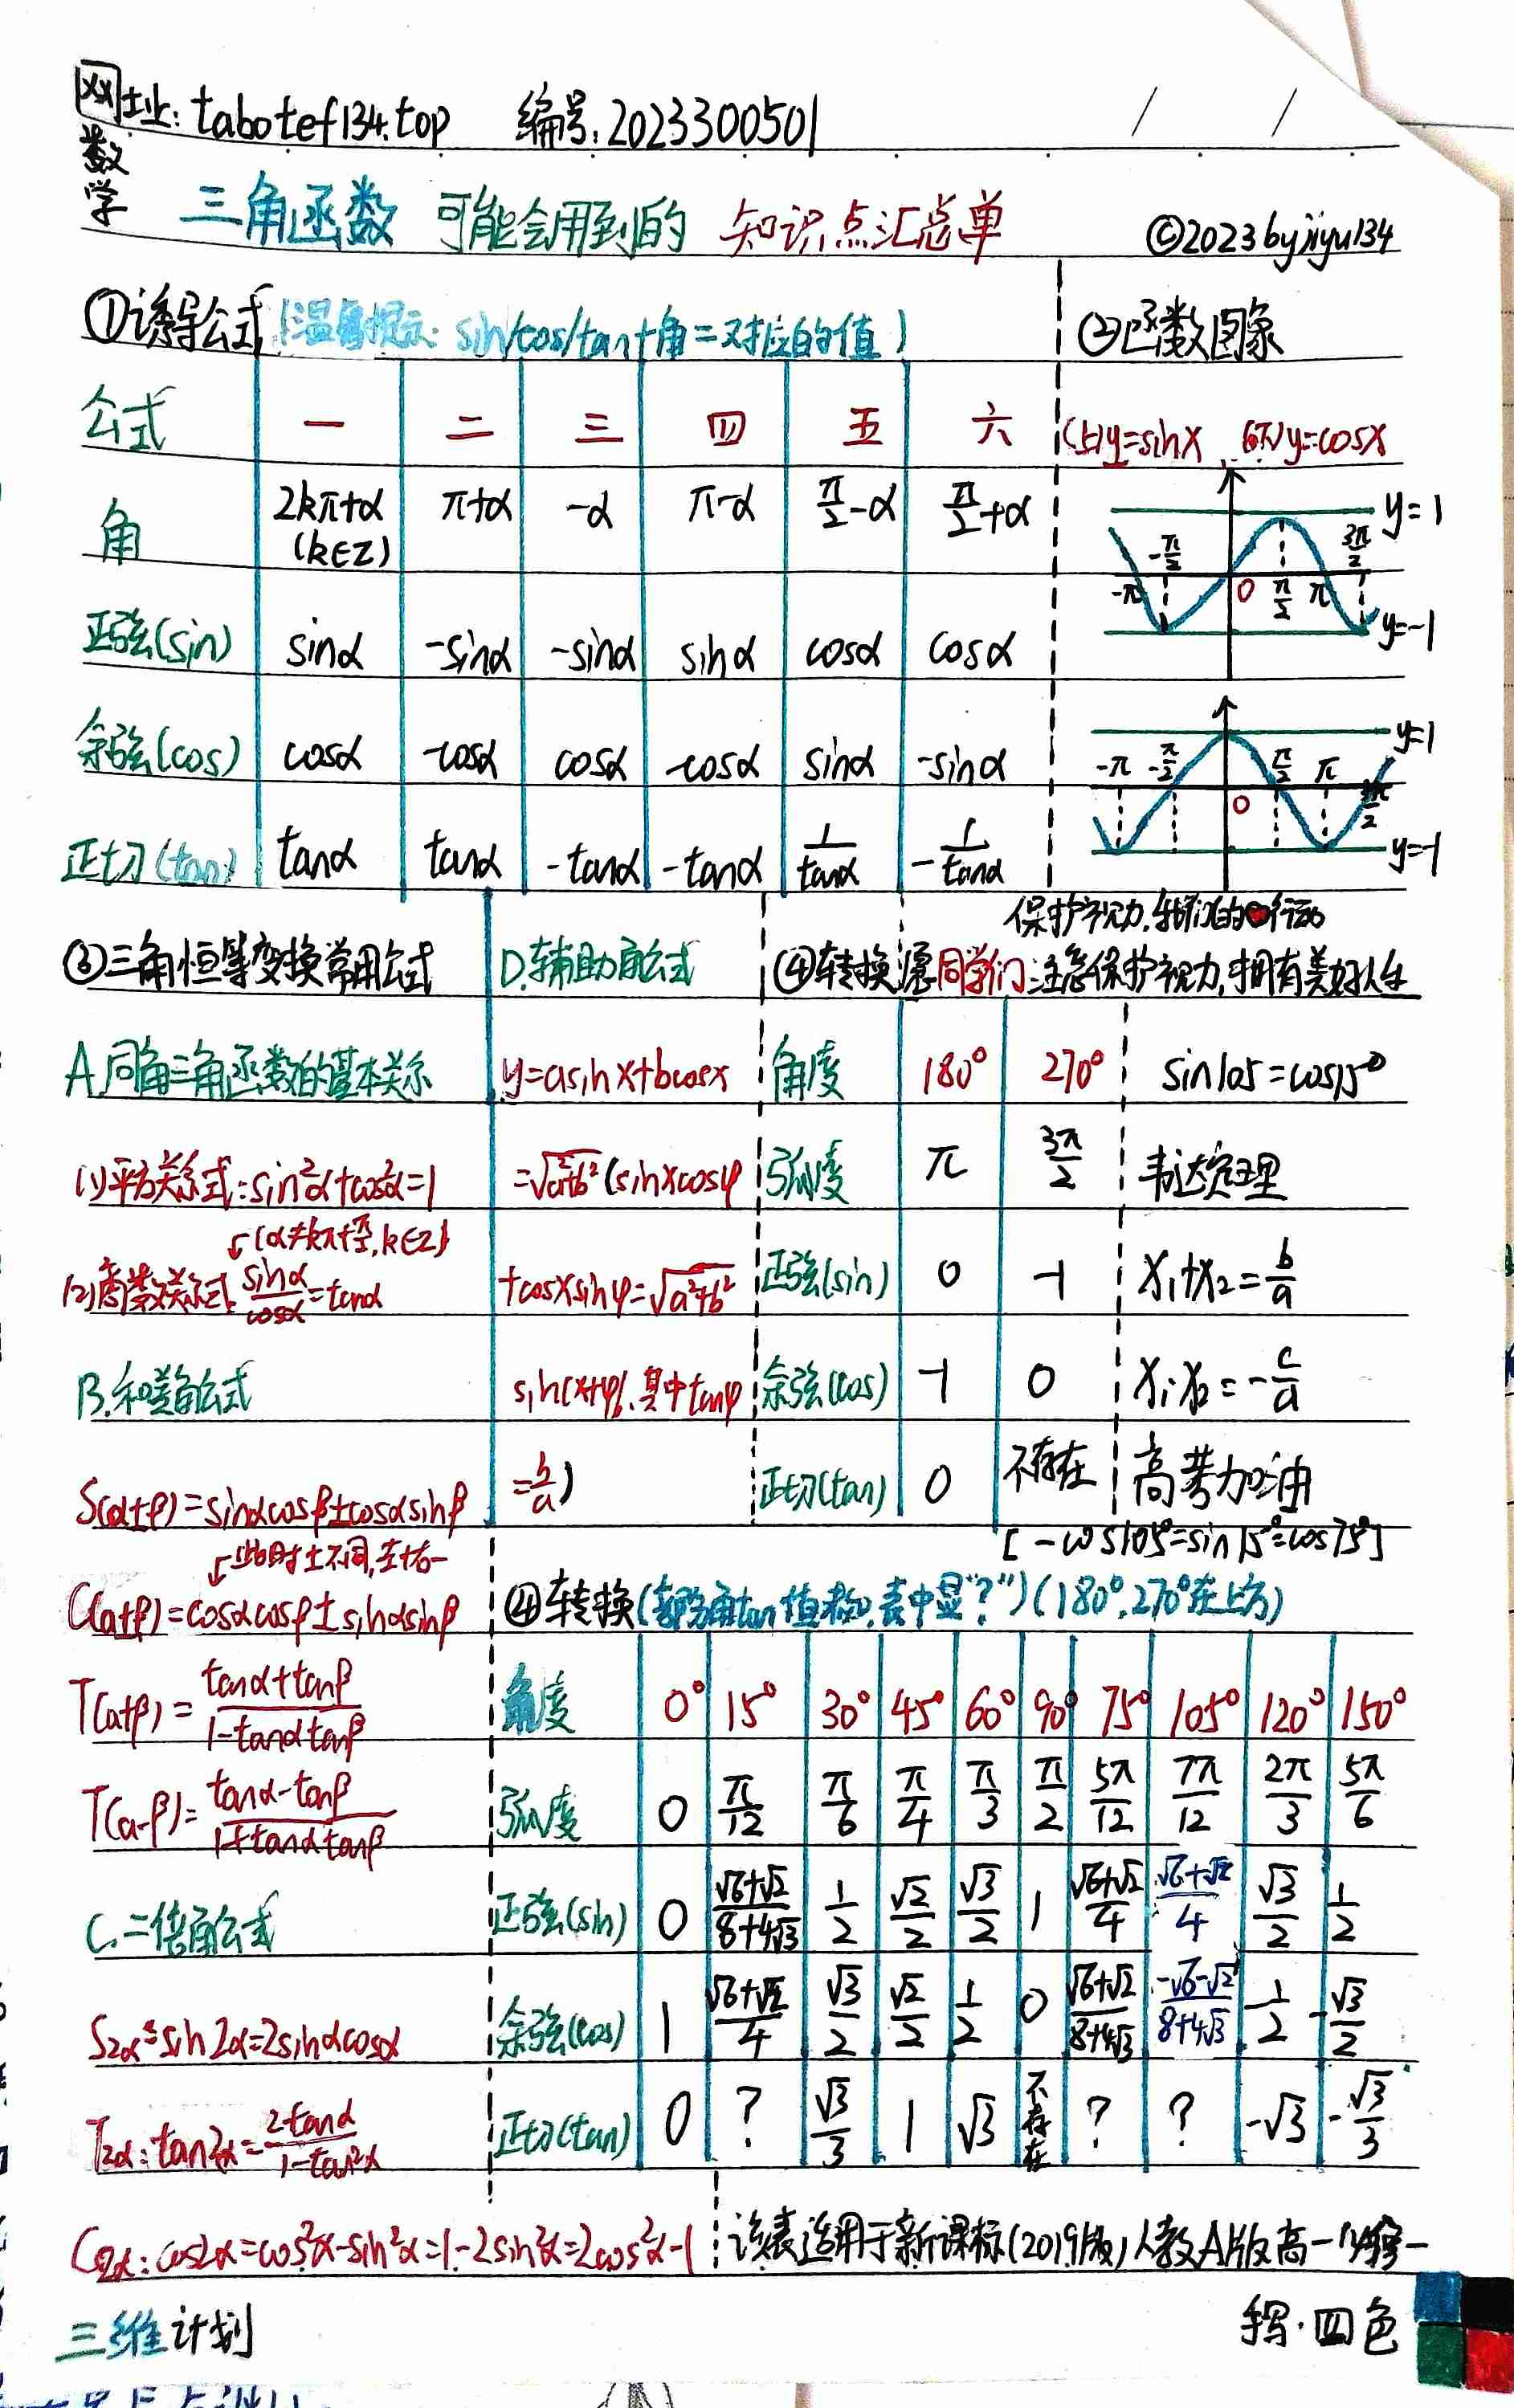 网址: tabotef134.top 编号: 2023300501
数学
三角函数 可能会用到的 知识点汇总单 ©2023 by jiyu134
①诱导公式(温馨提示: sin/cos/tan+角=对应的值)
公式 一 二 三 四 五 六
角 2kπ+α (k∈Z) π+α -α π-α π/2-α π/2+α
正弦(sin) sinα -sinα -sinα sinα cosα cosα
余弦(cos) cosα -cosα cosα -cosα sinα -sinα
正切(tan) tanα tanα -tanα -tanα 1/tanα -1/tanα
②函数图象
(上)y=sinx (下)y=cosx
y=1
-π -π/2 0 π/2 π 3π/2
y=-1
y=1
-π -π/2 0 π/2 π 3π/2
y=-1
保护视力,我们的行动
③三角恒等变换常用公式
A.同角三角函数的基本关系
(1)平方关系式:sin²α+cos²α=1
(α≠kπ+π/2,k∈Z)
(2)商数关系式: sinα/cosα=tanα
B.和差角公式
S(α±β)=sinαcosβ±cosαsinβ
此时±不同,左+右-
C(α±β)=cosαcosβ±sinαsinβ
T(α+β)=(tanα+tanβ)/(1-tanαtanβ)
T(α-β)=(tanα-tanβ)/(1+tanαtanβ)
C.二倍角公式
S2α:sin2α=2sinαcosα
T2α:tan2α=2tanα/(1-tan²α)
C2α:cos2α=cos²α-sin²α=1-2sin²α=2cos²α-1
D.辅助角公式
y=asinx+bcosx
=√(a²+b²)(sinxcosφ
+cosxsinφ=√(a²+b²)
sin(x+φ),其中tanφ
=b/a)
④转换 同学们注意保护视力,拥有美好人生
角度 180° 270°
弧度 π 3π/2
正弦(sin) 0 -1
余弦(cos) -1 0
正切(tan) 0 不存在
sin105=cos15°
韦达定理
x₁+x₂=b/a
x₁·x₂=-c/a
高考加油
[-cos105°=sin15°=cos75°]
④转换(部分角tan值略,表中显“?”)(180°,270°在上方)
角度 0° 15° 30° 45° 60° 90° 75° 105° 120° 150°
弧度 0 π/12 π/6 π/4 π/3 π/2 5π/12 7π/12 2π/3 5π/6
正弦(sin) 0 (√6+√2)/(8+4√3) 1/2 √2/2 √3/2 1 (√6+√2)/4 (√6+√2)/4 √3/2 1/2
余弦(cos) 1 (√6+√2)/4 √3/2 √2/2 1/2 0 (√6+√2)/(8+4√3) (-√6-√2)/(8+4√3) -1/2 -√3/2
正切(tan) 0 ? √3/3 1 √3 不存在 ? ? -√3 -√3/3
该表适用于新课标(2019版)人教A版高一必修一
三维计划
·四色